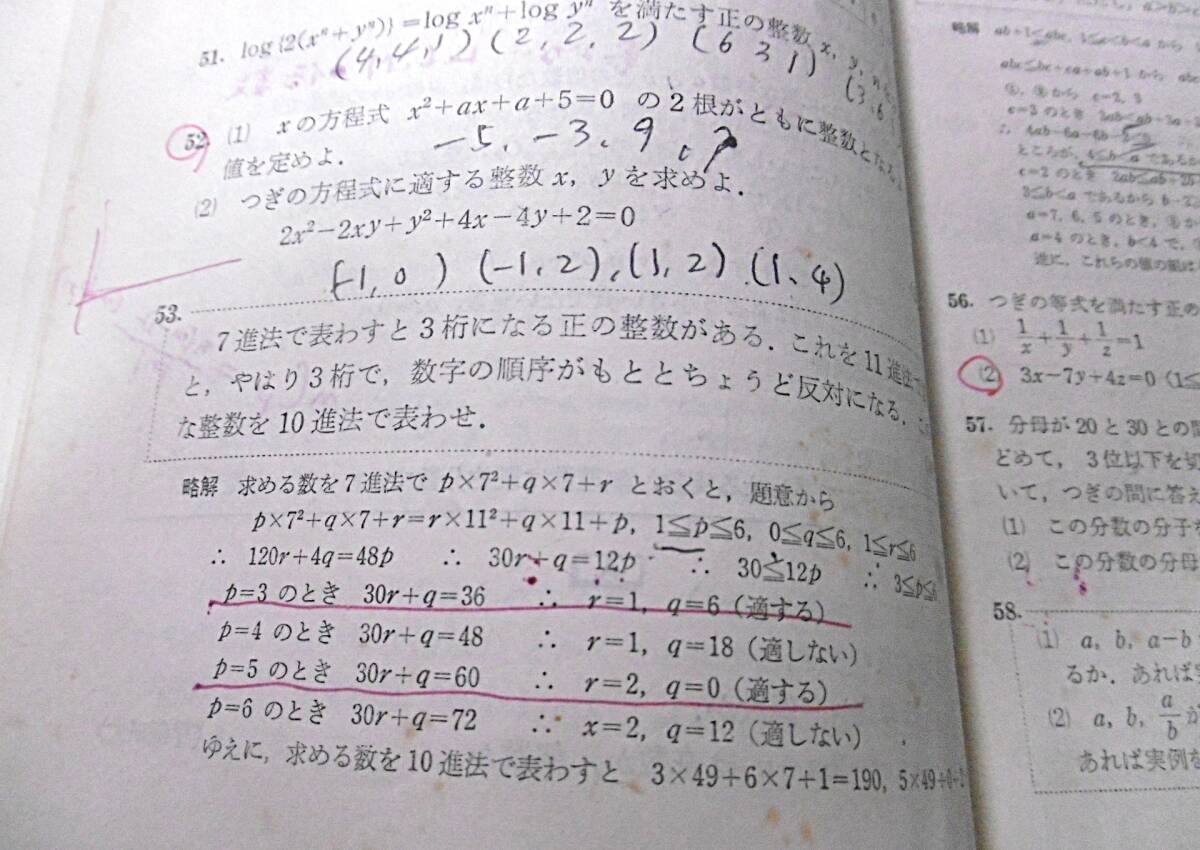 51. log{2(xⁿ+yⁿ)}=log xⁿ+log yⁿ を満たす正の整数 x, y,
(4,4,1) (2, 2, 2) (6 3 1) (3.6
52. (1) xの方程式 x²+ax+a+5=0 の2根がともに整数とな
値を定めよ.
-5, -3, 9,
(2) つぎの方程式に適する整数 x, y を求めよ.
2x²-2xy+y²+4x-4y+2=0
(-1, 0) (-1, 2), (1, 2) (1、4)
53.
7進法で表わすと3桁になる正の整数がある. これを11進法
と, やはり3桁で, 数字の順序がもととちょうど反対になる.
な整数を10進法で表わせ.
略解 求める数を7進法で p×7²+q×7+r とおくと, 題意から
p×7²+q×7+r=r×11²+q×11+p, 1≦p≦6, 0≦q≦6, 1≦r≦6
∴ 120r+4q=48p ∴ 30r+q=12p ∴ 30≦12p ∴ 3≦p≦6
p=3 のとき 30r+q=36 ∴ r=1, q=6 (適する)
p=4 のとき 30r+q=48 ∴ r=1, q=18 (適しない)
p=5 のとき 30r+q=60 ∴ r=2, q=0 (適する)
p=6 のとき 30r+q=72 ∴ x=2, q=12 (適しない)
ゆえに, 求める数を10進法で表わすと 3×49+6×7+1=190, 5×49+0+
略解 ab+1≦abc, 1≦c<b<a から
abc≦bc+ca+ab+1 から
から c=2, 3
c=3 のとき
∴ 4ab-6a-6b
ところが, 4≦b<a である
c=2 のとき 2ab≦ab+2b
3≦b<a であるから
a=7, 6, 5 のとき,
a=4 のとき, b<4 で,
逆に, これらの値の組は
56. つぎの等式を満たす正の
(1) 1/x+1/y+1/z=1
(2) 3x-7y+4z=0 (1≦
57. 分母が20と30との間
どめて, 3位以下を切
いて, つぎの問に答え
(1) この分数の分子
(2) この分数の分母
58.
(1) a, b, a-b
るか. あれば実
(2) a, b, a/b が
あれば実例を